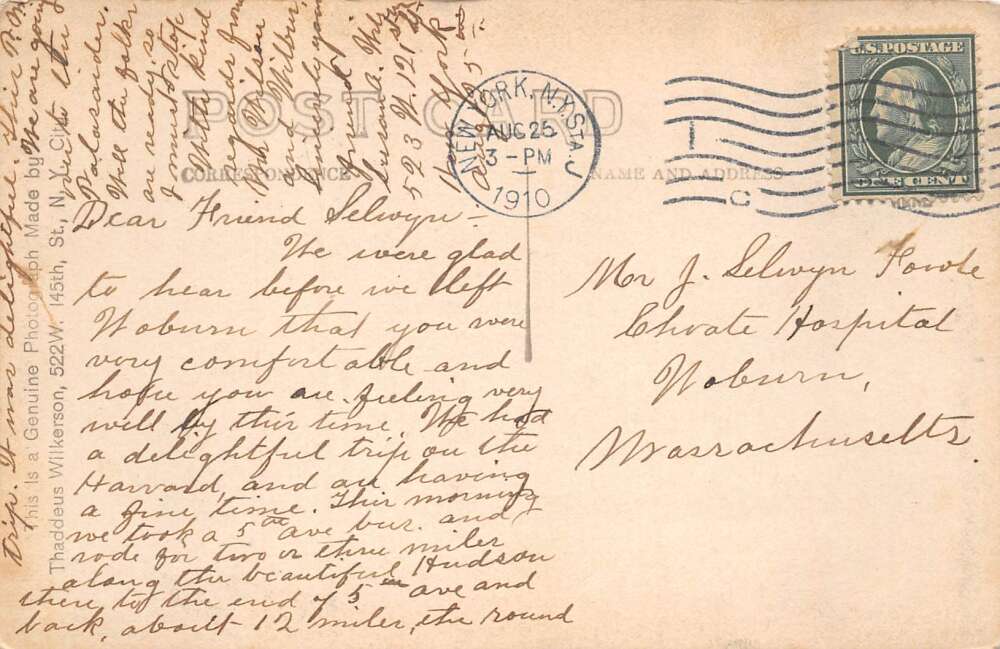 POST CARD
CORRESPONDENCE
NAME AND ADDRESS
U.S. POSTAGE
ONE CENT
NEW YORK, N.Y. STA. J
AUG 25
3 - PM
1910
C
Dear Friend Selwyn -
We were glad
to hear before we left
Woburn that you were
very comfortable and
hope you are feeling very
well by this time. We had
a delightful trip on the
Harvard and are having
a fine time. This morning
we took a 5th ave bus. and
rode for two or three miles
along the beautiful Hudson
then to the end of 5th ave and
back, about 12 miles, the round
trip. It was delightful. This P.M.
We are going
to the
Palasaides.
Well the folks
are ready, so
I must stop
With kind
regards from
Mrs. Wilson
and Wilbur,
Sincerely your
friend,
523 W. 121 St
New York
Aug 25
Mr J. Selwyn Fowle
Choate Hospital
Woburn,
Massachusetts.
This is a Genuine Photograph Made by
Thaddeus Wilkerson, 522 W. 145th, St., N.Y. City